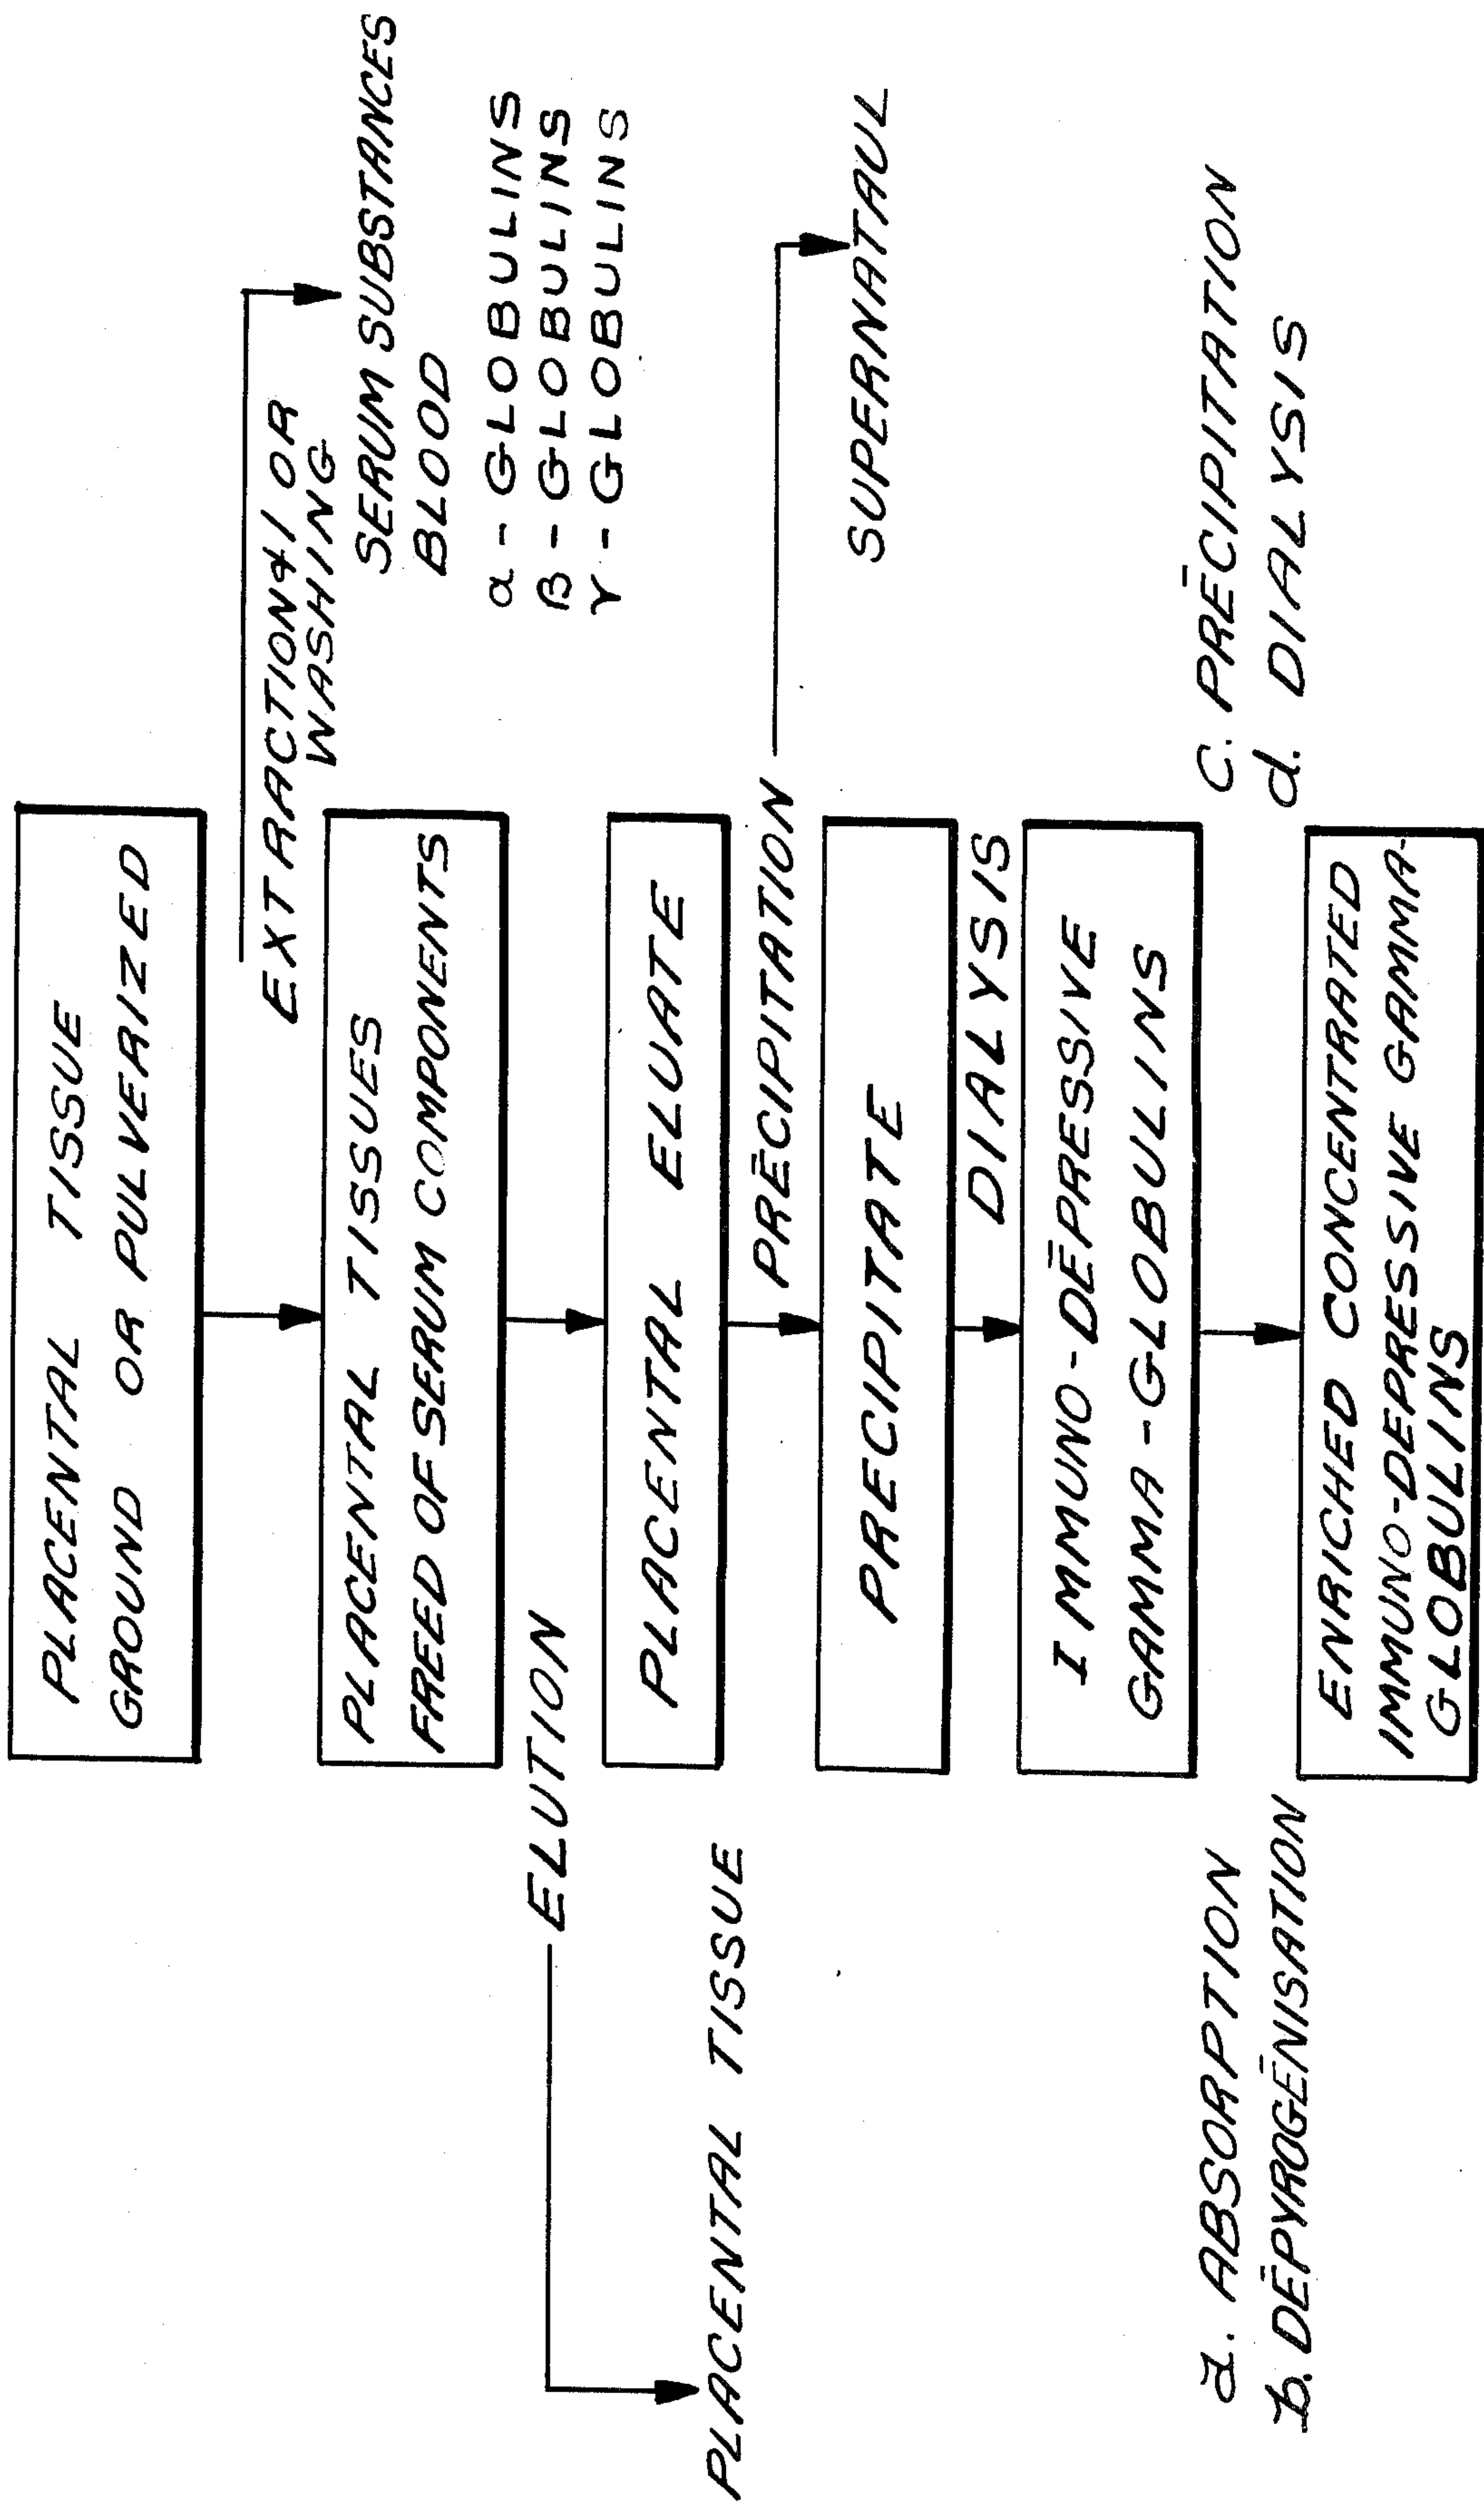 PLACENTAL TISSUE
GROUND OR PULVERIZED
EXTRACTION &/OR
WASHING
SERUM SUBSTANCES
BLOOD
α-GLOBULINS
β-GLOBULINS
γ-GLOBULINS
PLACENTAL TISSUES
FREED OF SERUM COMPONENTS
ELUTION
PLACENTAL TISSUE
PLACENTAL ELUATE
PRĒCIPITATION
SUPERNATAUL
PRECIPITATE
DIALYSIS
IMMUNO-DĒPRESSIVE
GAMMA-GLOBULINS
a. ABSORPTION
b. DĒPYROGĒNISATION
c. PRĒCIPITATION
d. DIALYSIS
ENRICHED CONCENTRATED
IMMUNO-DEPRESSIVE GAMMA-
GLOBULINS